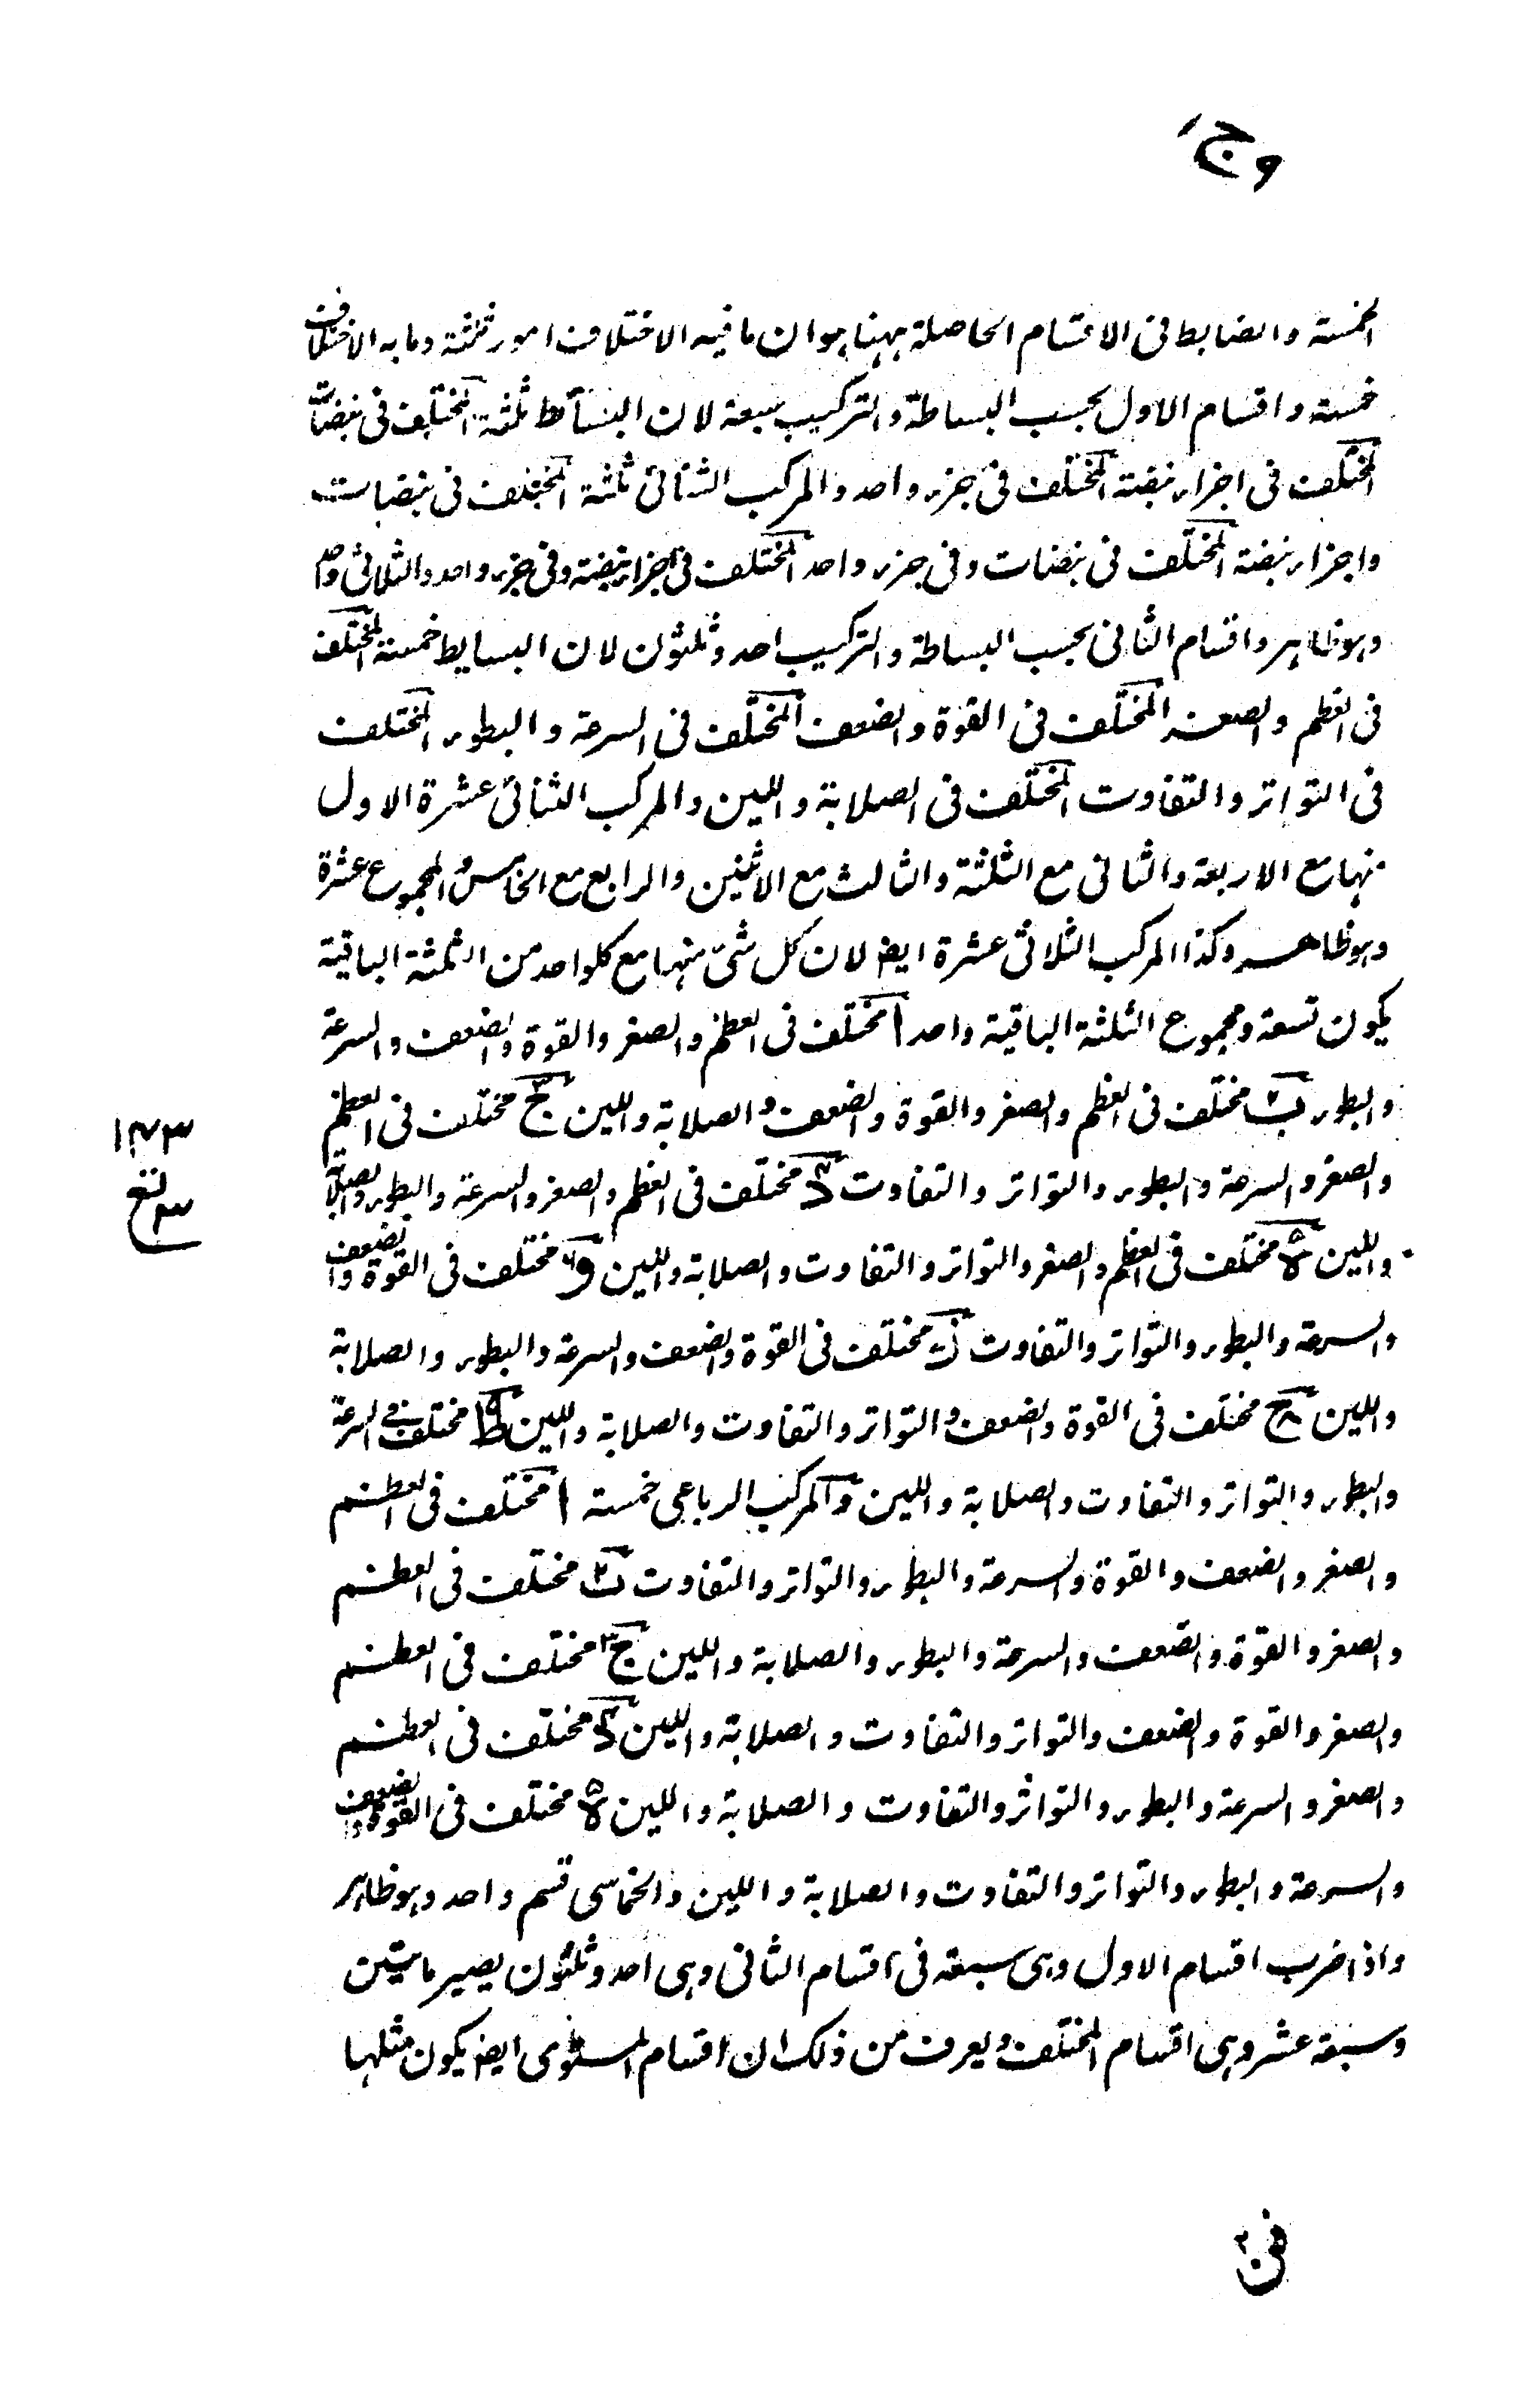 وج
الخمسة والضابط فى الاقسام الحاصلة ههنا هو ان ما فيه الاختلاف امور ثلثة وما به الاختلاف
خمسة واقسام الاول بحسب البساطة والتركيب سبعة لان البسائط ثلثة المختلف فى نبضات
المختلف فى اجزاء نبضة المختلف فى جزء واحد والمركب الثنائى ثلثة المختلف فى نبضات
واجزاء نبضة المختلف فى نبضات وفى جزء واحد المختلف فى اجزاء نبضة وفى جزء واحد والثلاثى واحد
وهو ظاهر واقسام الثانى بحسب البساطة والتركيب احد وثلثون لان البسايط خمسة المختلف
فى العظم والصغر المختلف فى القوة والضعف المختلف فى السرعة والبطوء المختلف
فى التواتر والتفاوت المختلف فى الصلابة واللين والمركب الثنائى عشرة الاول
منها مع الاربعة والثانى مع الثلثة والثالث مع الاثنين والرابع مع الخامس والمجموع عشرة
وهو ظاهر وكذا المركب الثلاثى عشرة ايضا لان كل شئ منها مع كلواحد من الثلثة الباقية
يكون تسعة ومجموع الثلثة الباقية واحد ا مختلف فى العظم والصغر والقوة والضعف والسرعة
والبطوء ب٢ مختلف فى العظم والصغر والقوة والضعف والصلابة واللين ج٣ مختلف فى العظم
والصغر والسرعة والبطوء والتواتر والتفاوت د٤ مختلف فى العظم والصغر والسرعة والبطوء والصلابة
واللين ه٥ مختلف فى العظم والصغر والتواتر والتفاوت والصلابة واللين و٦ مختلف فى القوة والضعف
والسرعة والبطوء والتواتر والتفاوت ز مختلف فى القوة والضعف والسرعة والبطوء والصلابة
واللين ح٨ مختلف فى القوة والضعف والتواتر والتفاوت والصلابة واللين ط٩ مختلف فى السرعة
والبطوء والتواتر والتفاوت والصلابة واللين والمركب الرباعى خمسة ا مختلف فى العظم
والصغر والضعف والقوة والسرعة والبطوء والتواتر والتفاوت ب٢ مختلف فى العظم
والصغر والقوة والضعف والسرعة والبطوء والصلابة واللين ج٣ مختلف فى العظم
والصغر والقوة والضعف والتواتر والتفاوت والصلابة واللين د٤ مختلف فى العظم
والصغر والسرعة والبطوء والتواتر والتفاوت والصلابة واللين ه٥ مختلف فى القوة والضعف
والسرعة والبطوء والتواتر والتفاوت والصلابة واللين والخماسى قسم واحد وهو ظاهر
واذا ضرب اقسام الاول وهى سبعة فى اقسام الثانى وهى احد وثلثون يصير مايتين
وسبعة عشر وهى اقسام المختلف ويعرف من ذلك ان اقسام المستوى ايضا يكون مثلها
فن٢